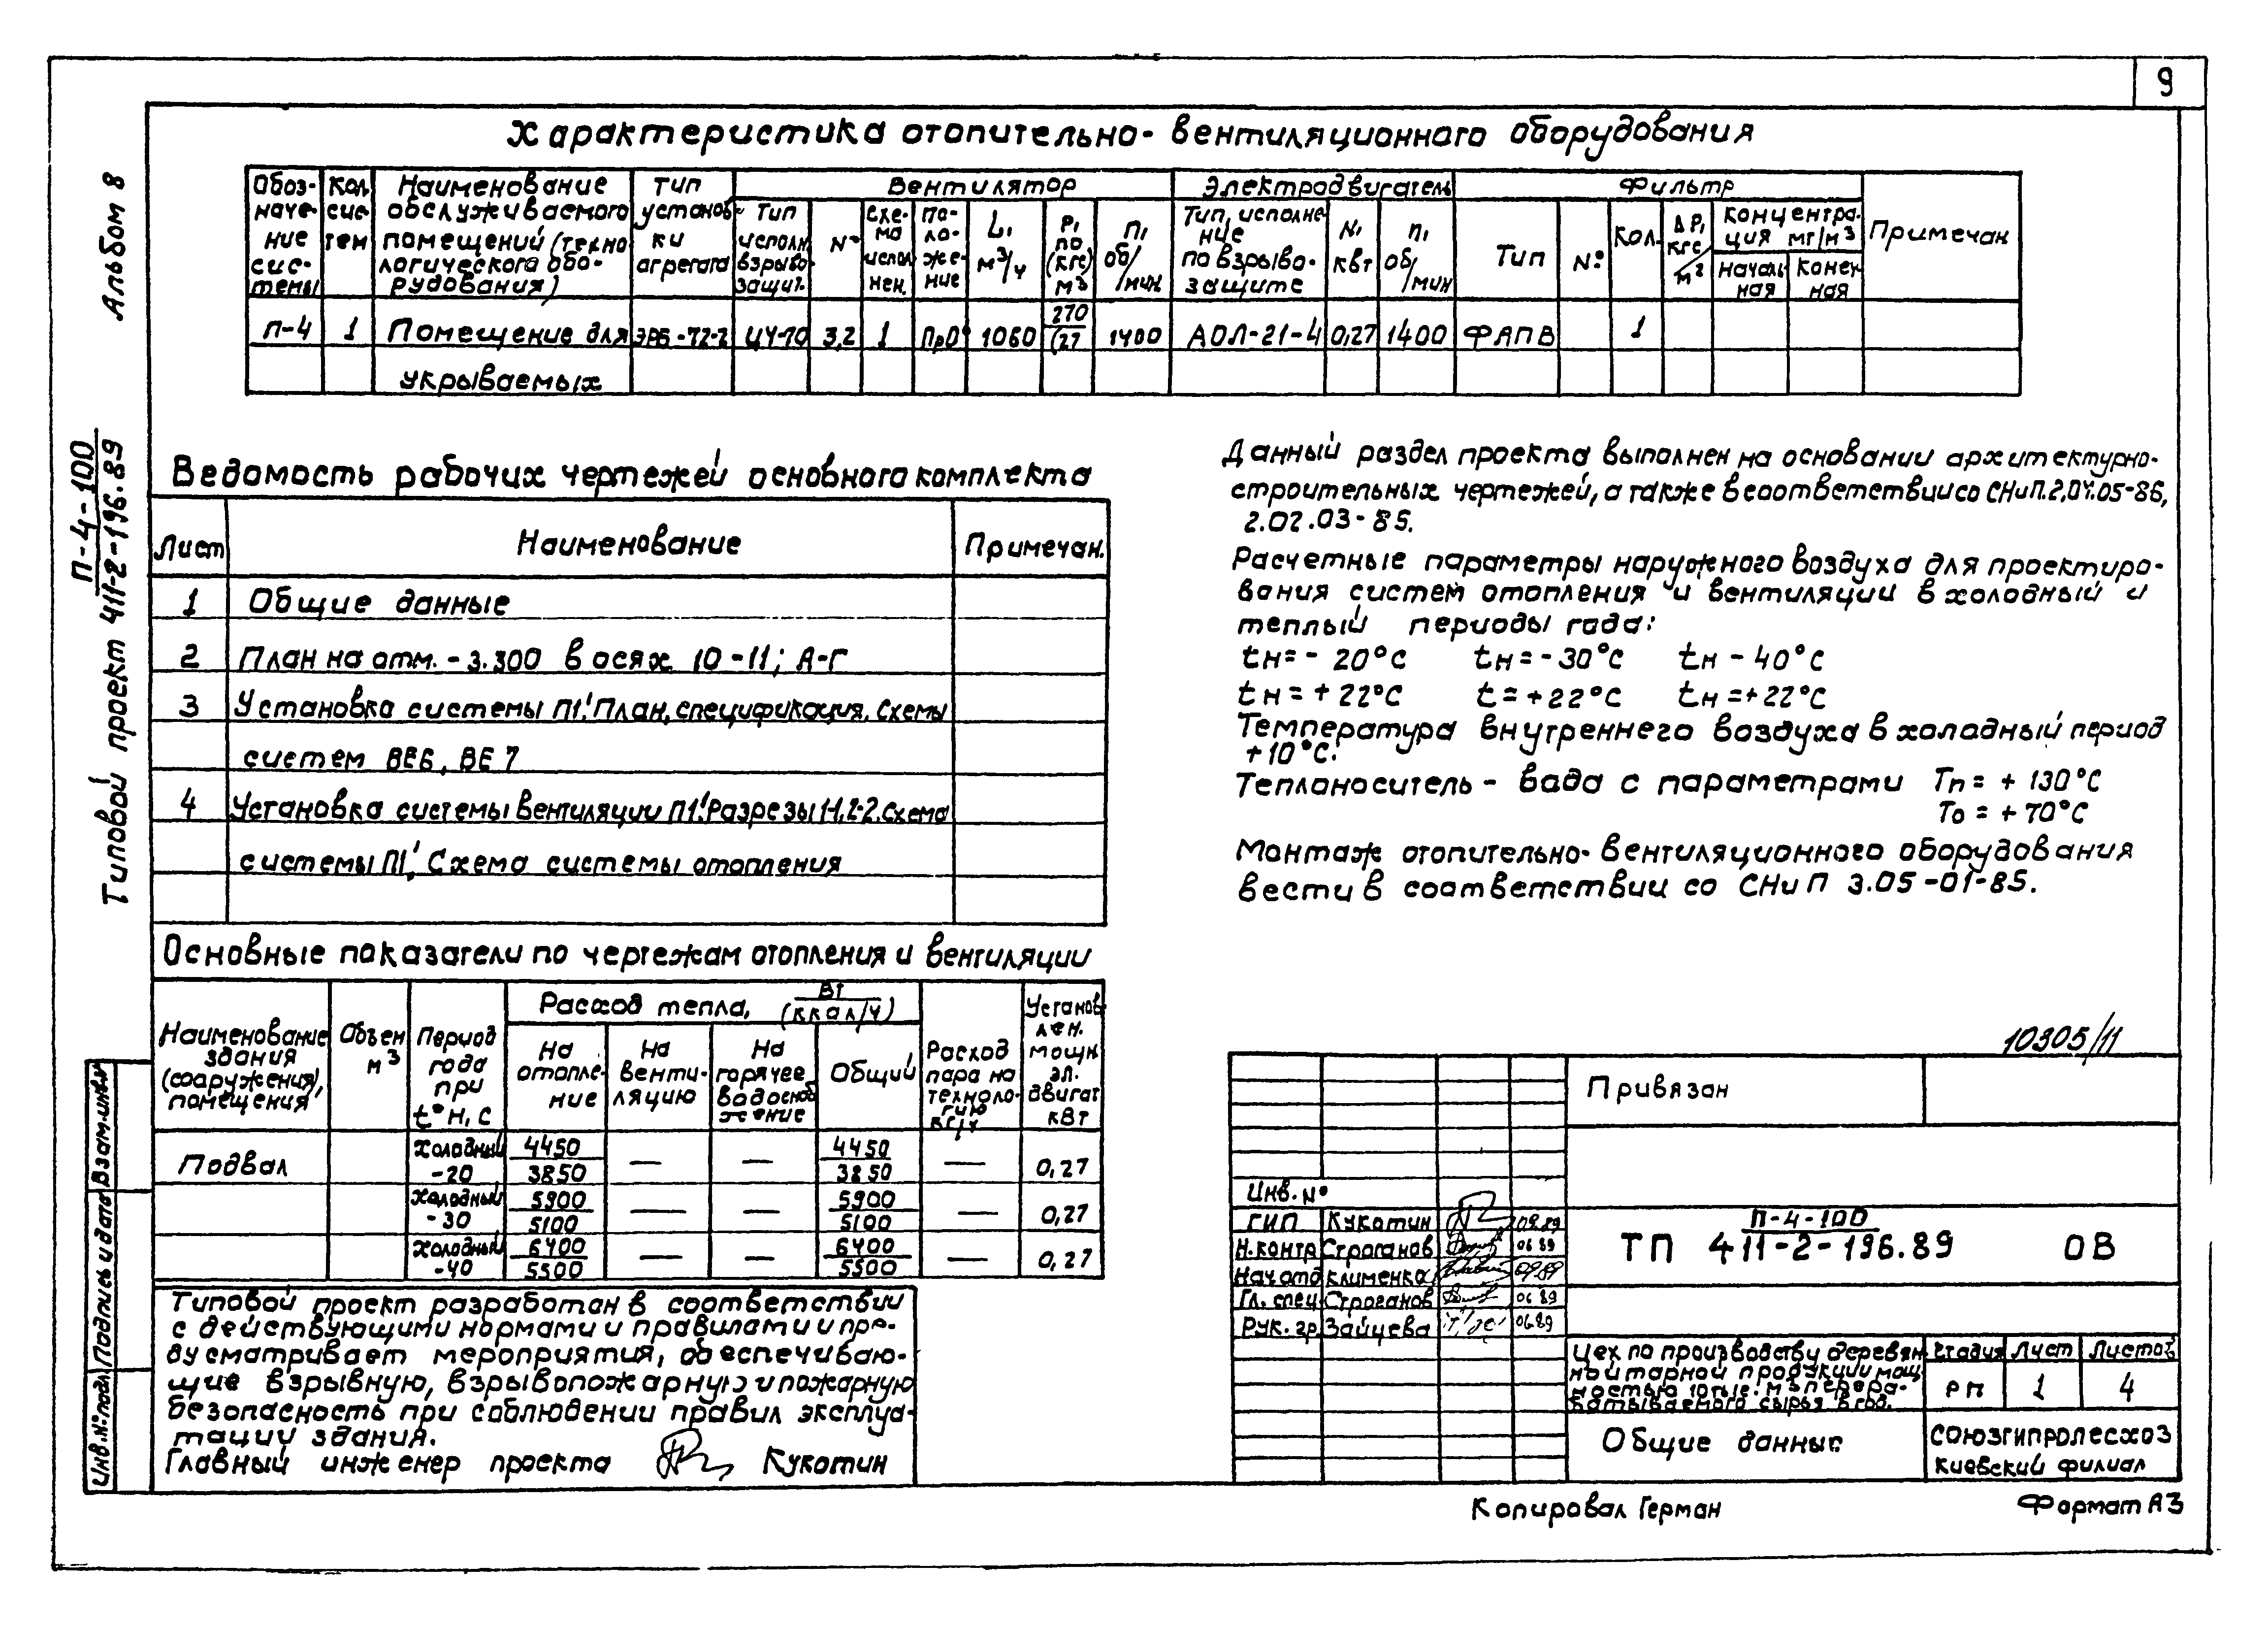 9
Характеристика отопительно-вентиляционного оборудования
Обозначение системы | Кол. систем | Наименование обслуживаемого помещений (технологического оборудования) | Тип установки агрегата | Вентилятор | Электродвигатель | Фильтр | Примечан.
Тип исполн. взрывозащит. | № | Схема исполнен. | Положение | L, м³/ч | Р, по (кгс) м³ | п, об/мин | Тип, исполнение по взрывозащите | N, квт | п, об/мин | Тип | № | Кол. | ΔР, кгс/м² | Концентрация мг/м3
Начальная | Конечная
П-4 | 1 | Помещение для | ЭРВ-72-2 | Ц4-70 | 3,2 | 1 | Пр0° | 1060 | 270 (27 | 1400 | АОЛ-21-4 | 0,27 | 1400 | ФЯПВ | 1
укрываемых
Альбом 8
Типовой проект П-4-100 411-2-196.89
Ведомость рабочих чертежей основного комплекта
Лист | Наименование | Примечан.
1 | Общие данные
2 | План на отм. -3.300 в осях 10-11; А-Г
3 | Установка системы П1! План, спецификация. Схемы
систем ВЕ6, ВЕ7
4 | Установка системы вентиляции П1! Разрезы 1-1, 2-2. Схема
системы П1! Схема системы отопления
Данный раздел проекта выполнен на основании архитектурно-
строительных чертежей, а также в соответствии со СНиП.2.04.05-86,
2.02.03-85.
Расчетные параметры наружного воздуха для проектиро-
вания систем отопления и вентиляции в холодный и
теплый периоды года:
tн=- 20°С tн=-30°С tн - 40°С
tн=+22°С t=+22°С tн=+22°С
Температура внутреннего воздуха в холодный период
+10°С.
Теплоноситель - вода с параметрами Тп = + 130°С
То = +70°С
Монтаж отопительно-вентиляционного оборудования
вести в соответствии со СНиП 3.05-01-85.
Основные показатели по чертежам отопления и вентиляции
Наименование здания (сооружения), помещения | Объем м3 | Период года при t° н, с | Расход тепла, Вт (ккал/ч) | Расход пара на технологию кг/ч | Установлен. мощн. эл. двигат. кВт
На отопление | На вентиляцию | На горячее водоснабжение | Общий
Подвал | холодный -20 | 4450 3850 | — | — | 4450 3850 | — | 0,27
холодный -30 | 5900 5100 | — | — | 5900 5100 | — | 0,27
холодный -40 | 6400 5500 | — | — | 6400 5500 | — | 0,27
Типовой проект разработан в соответствии
с действующими нормами и правилами и пре-
дусматривает мероприятия, обеспечиваю-
щие взрывную, взрывопожарную и пожарную
безопасность при соблюдении правил эксплуа-
тации здания.
Главный инженер проекта Кукотин
Взам.инв.№
Подпись и дата
Инв.№ подл.
10305/11
Привязан
Инв. №
ГИП Кукотин 09.89
Н.контр Строганов 06 89
Нач отд Клименко 09.89
Гл. спец Строганов 06 89
Рук. гр. Зайцева 06.89
ТП П-4-100 411-2-196.89 ОВ
Цех по производству деревян-
ной тарной продукции мощ-
ностью 10 тыс. м3 перера-
батываемого сырья в год.
Стадия Лист Листов
РП 1 4
Общие данные
СОЮЗГИПРОЛЕСХОЗ
Киевский филиал
Копировал Герман
Формат А3